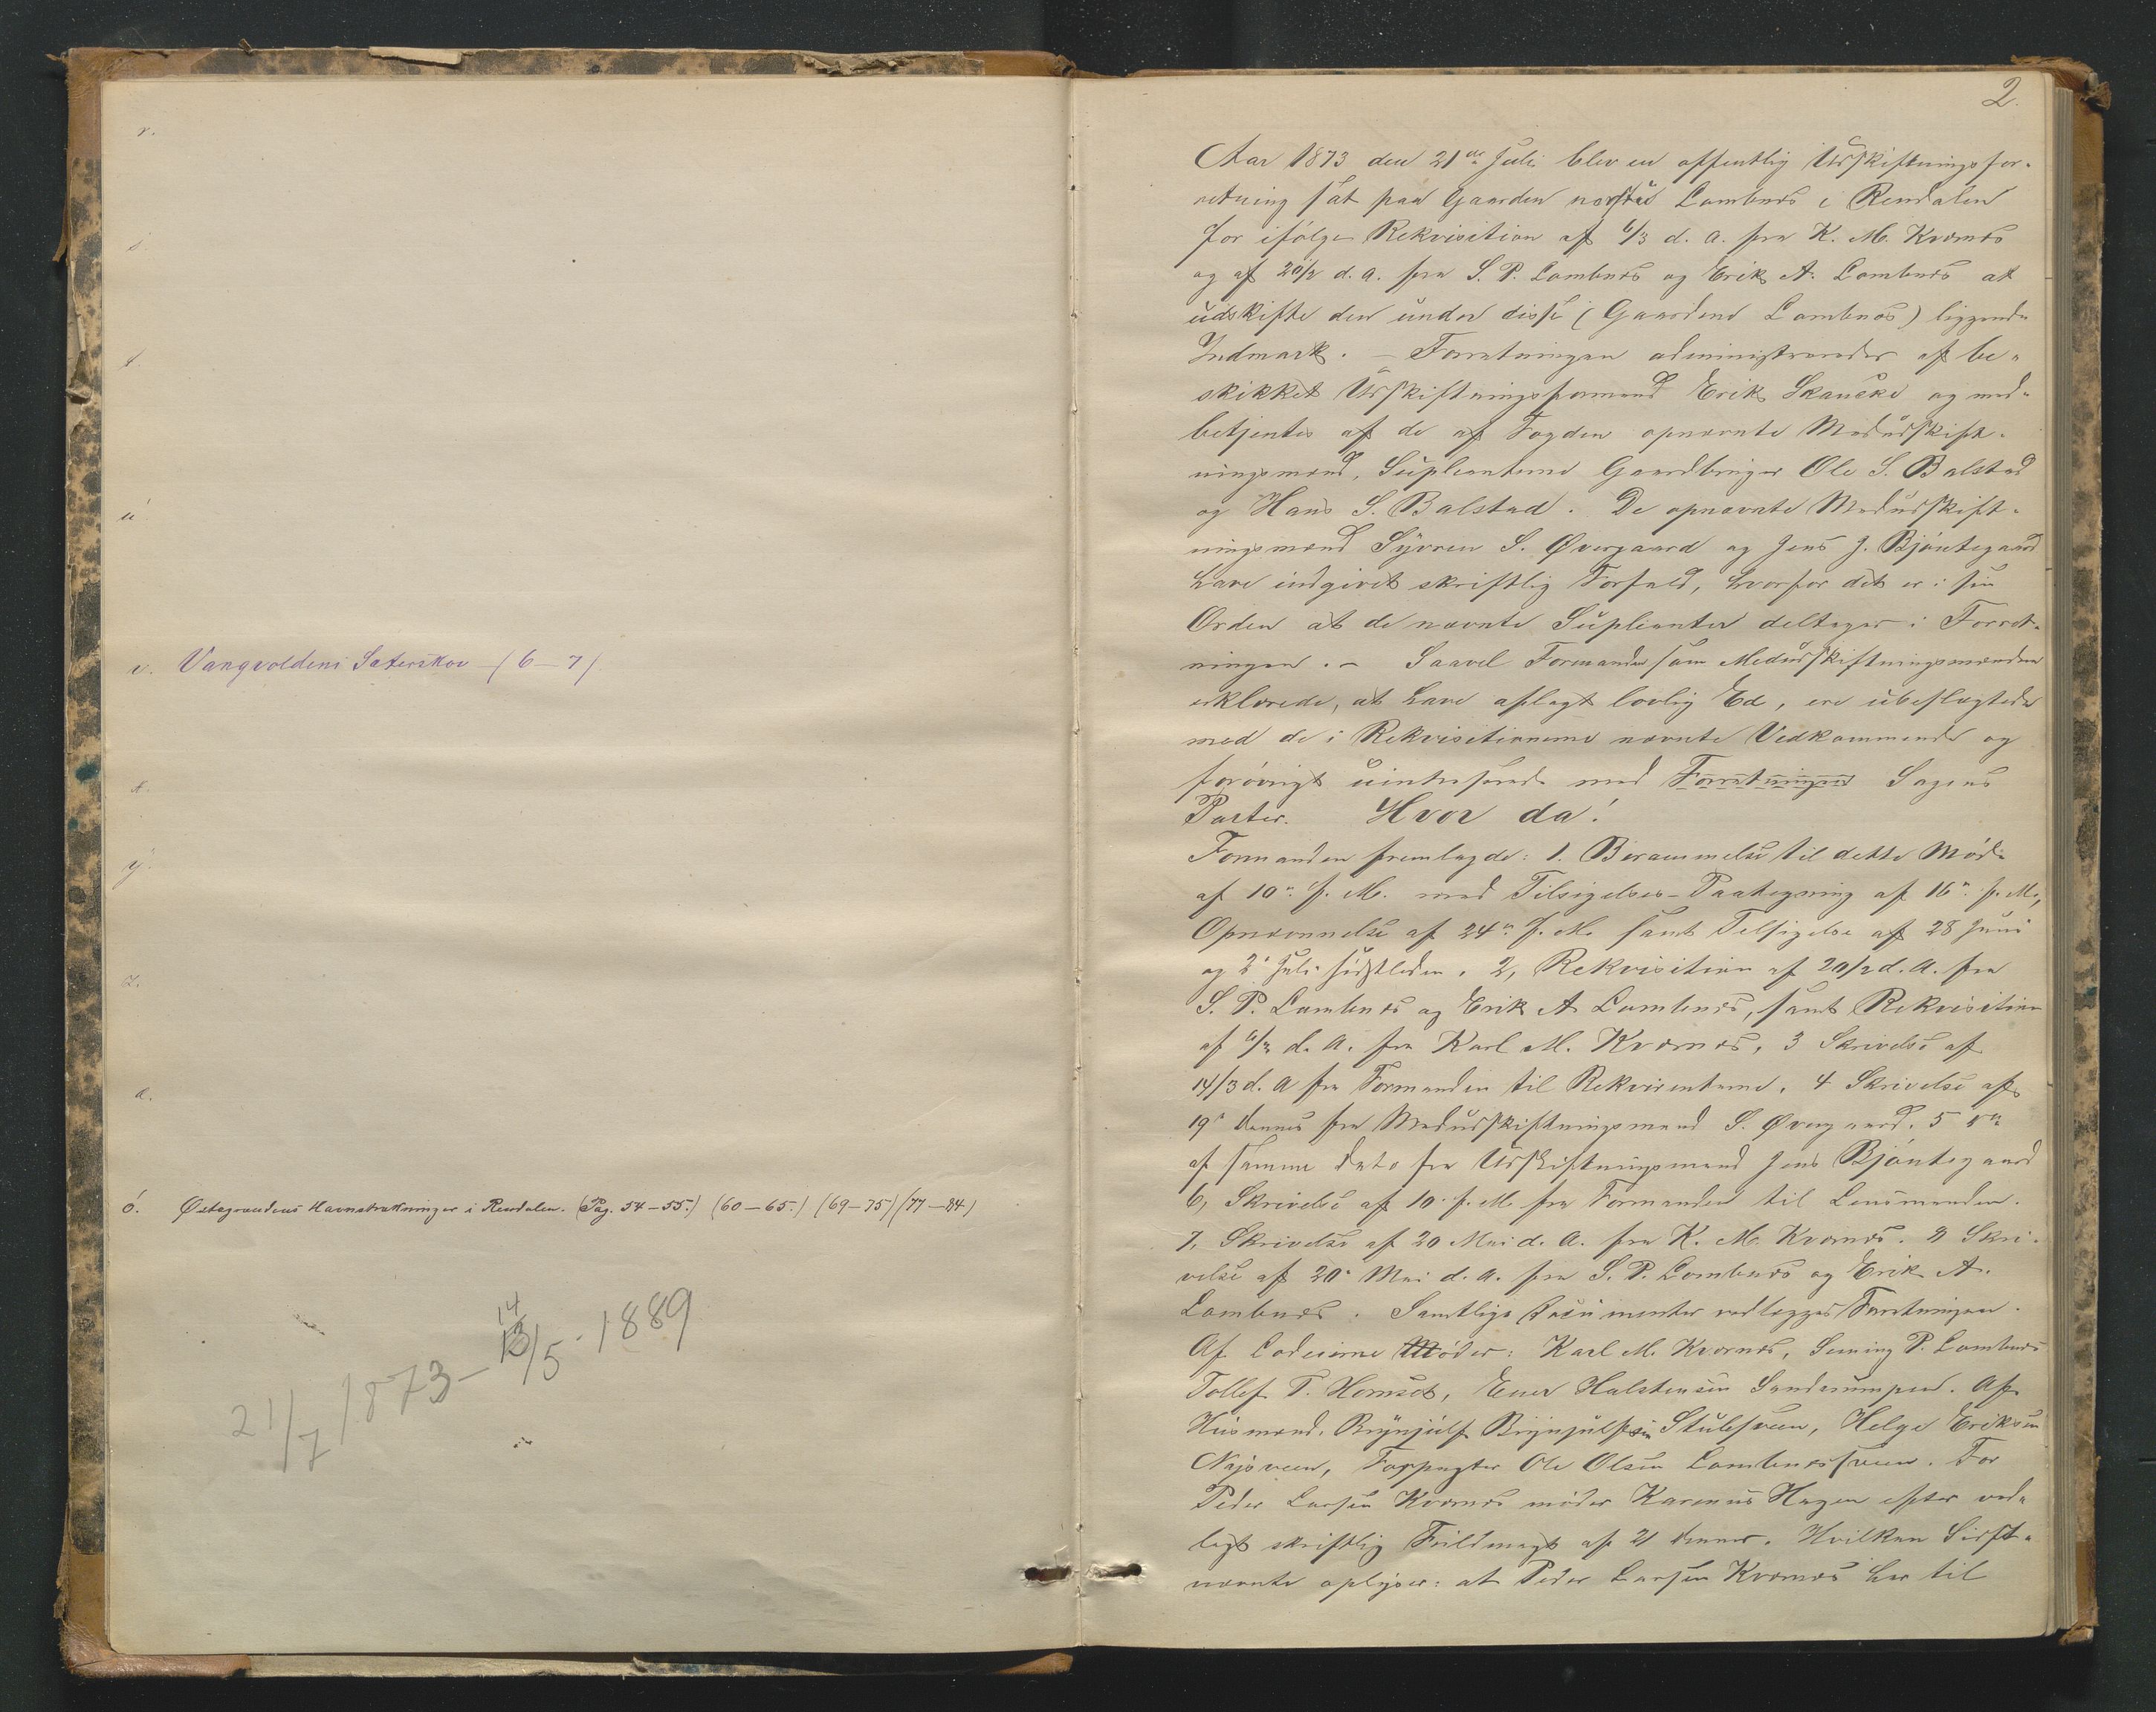 r.
s.
t.
u.
v. Vangvoldens Sæterskov (6-7)
x.
y.
z.
æ.
ö. Østagrændens Havnestrækninger i Rendalen. (Pag. 54-55.) (60-65.) (69-75) (77-84)
21/7 1873 - 14 13/5 - 1889
2.
Aar 1873 den 21de Juli blev en offentlig Udskiftningsfor-
retning sat paa Gaarden nordre Lombnæs i Rendalen
for ifølge Rekvisition af 6/3 d. A. fra K. M. Kværnæs
og af 20/2 d. A. fra S. P. Lombnæs og Erik A. Lombnæs at
udskifte den under disse (Gaardene Lombnæs) liggende
Indmark. - Forretningen administreredes af be-
skikket Udskiftningsformand Erik Skancke og med-
betjentes af de af Fogden opnævnte Medudskift-
ningsmænd, Suplianterne Gaardbruger Ole S. Balstad
og Hans S. Balstad. De opnævnte Medudskift-
ningsmænd Syvren S. Øvergaard og Jens J. Bjøntegaard
have indgivet skriftlig Forfald, hvorfor det er i sin
Orden at de nævnte Suplianter deltager i Forret-
ningen. - Saavel Formanden som Medudskiftningsmændene
erklærede, at have aflagt lovlig Ed, ere ubeslægtede
med de i Rekvisitionerne nævnte Vedkommende og
forøvrigt uinteserede med Forretningen Sagens
Parter. Hvor da!
Formanden fremlagde: 1. Berammelse til dette Møde
af 10de f. M. med Tilsigelses-Paategning af 16de f. M.,
Opnævnelse af 24de f. M. samt Tilsigelse af 28 Juni
og 2 Juli sidstleden. 2, Rekvisition af 20/2 d. A. fra
S. P. Lombnæs og Erik A Lombnæs, samt Rekvisition
af 6/3 d. A. fra Karl M. Kværnæs, 3 Skrivelse af
14/3 d. A fra Formanden til Rekvirenterne, 4 Skrivelse af
19de dennes fra Medudskiftningsmand S. Øvergaard. 5
af samme Dato fra Udskiftningsmand Jens Bjøntegaard
6, Skrivelse af 10 f. M. fra Formanden til Lensmanden.
7, Skrivelse af 20 Mai d. A. fra K. M. Kværnæs. 8 Skri-
velse af 20 Mai d. A. fra S. P. Lombnæs og Erik A.
Lombnæs. Samtlige Documenter vedlægges Forretningen.
Af Lodeierne Møder: Karl M. Kværnæs, Simming P. Lombnæs
Tollef T. Hornset, Ener Halstensen Sandrumpen. Af
Husmænd, Brynjulf Brynjulfsen Stubsveen, Helge Eriksen
Nysveen, Forpagter Ole Olsen Lombnæssveen. For
Peder Larsen Kværnæs møder Karenus Hagen efter ved-
lagt skriftlig Fuldmagt af 21 dennes. Hvilken Sidst-
nævnte oplyser: at Peder Larsen Kværnæs har til